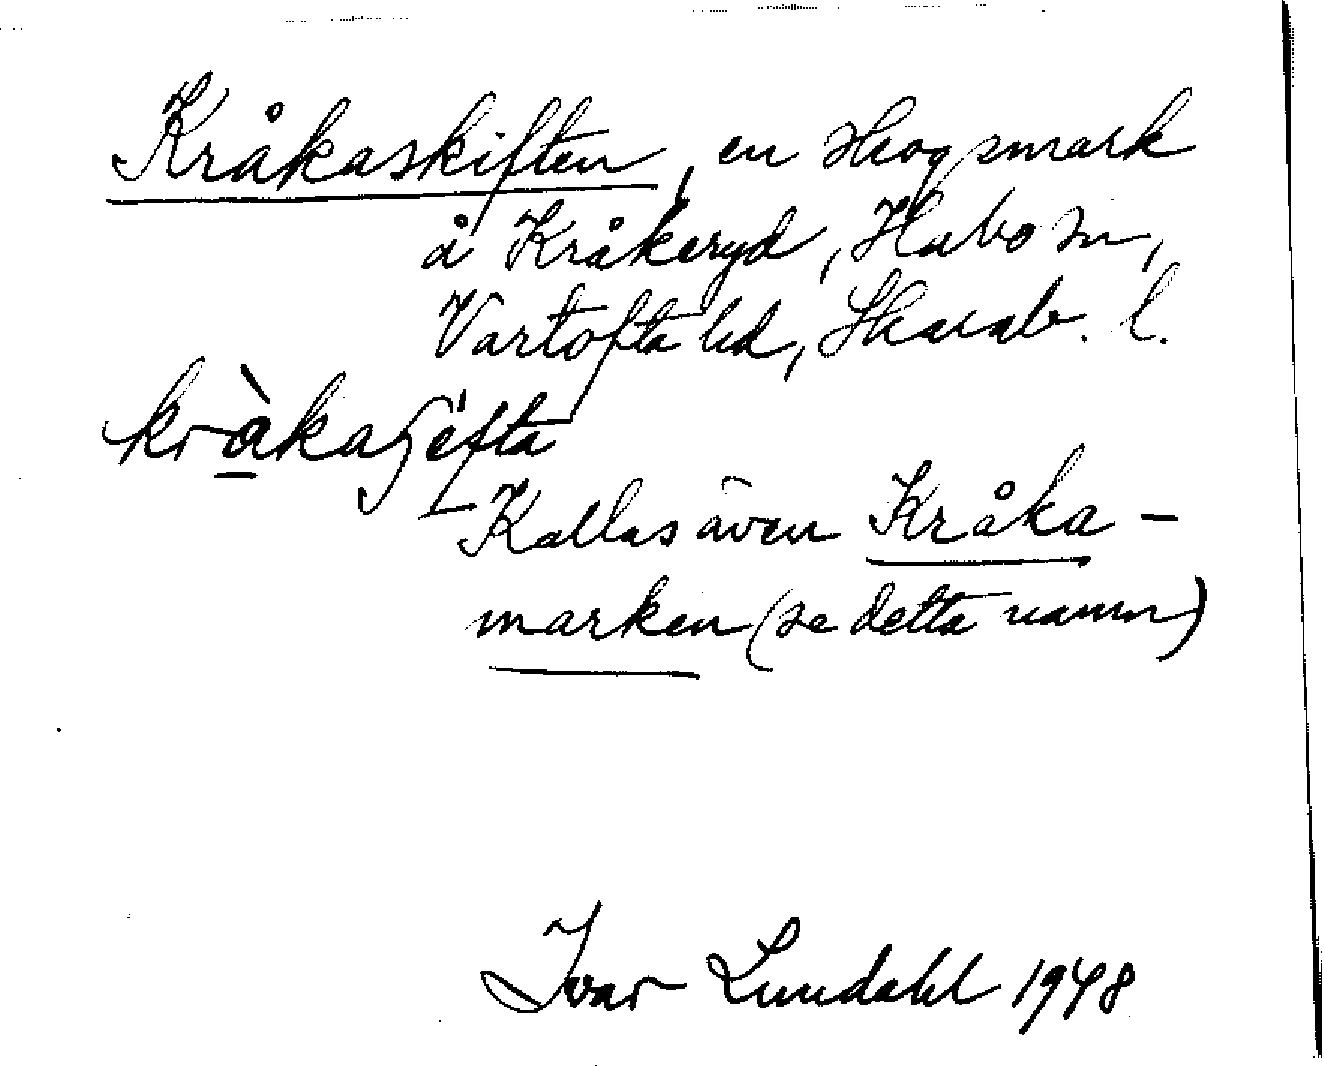 Kråkaskiften, en skogsmark
å Kråkeryd, Habo sn,
Vartofta hd, Skarab. l.
Kallas även Kråka-
marken (se detta namn)
Ivar Lundahl 1948